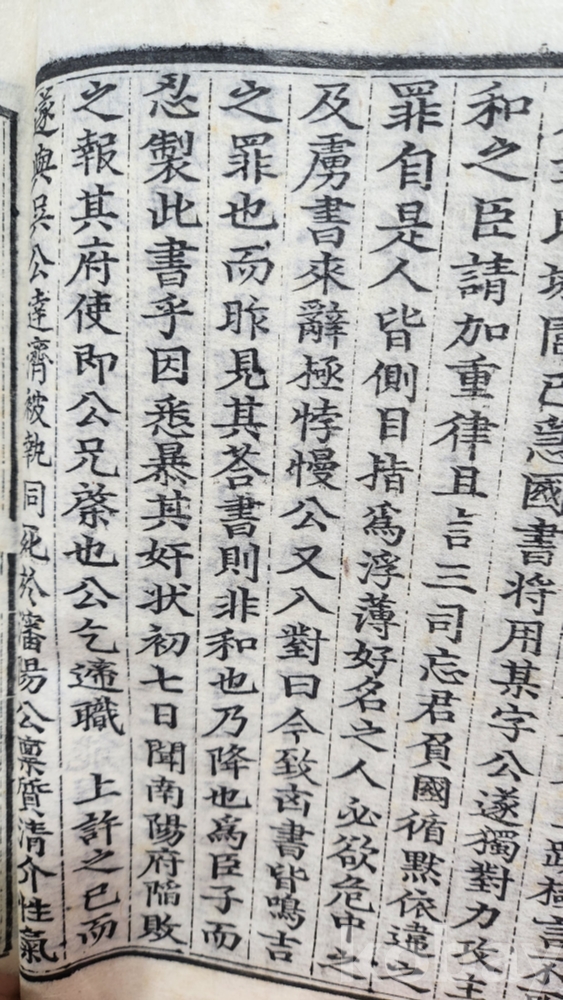 國書將用某字公遂獨對力攻主
和之臣請加重律且言三司忘君負國循默依違之
罪自是人皆側目指爲浮薄好名之人必欲危中之
及虜書來辭極悖慢公又入對曰今致凶書皆鳴吉
之罪也而昨見其答書則非和也乃降也爲臣子而
忍製此書乎因悉暴其奸狀初七日聞南陽府陷敗
之報其府使即公兄棨也公乞遞職 上許之已而
遂與吳公達濟被執同死於瀋陽公稟質清介性氣